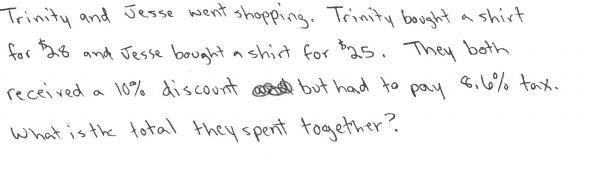 Trinity and Jesse went shopping. Trinity bought a shirt
for $28 and Jesse bought a shirt for $25. They both
received a 10% discount but had to pay 8.6% tax.
What is the total they spent together?